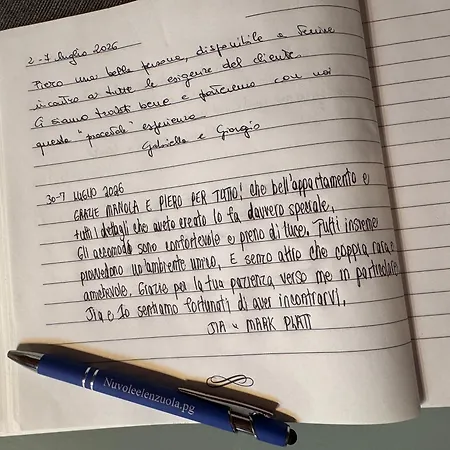 2-7 luglio 2026
Piero una bella persona, disponibile a venire
incontro a tutte le esigenze del cliente.
Ci siamo trovati bene e porteremo con noi
questa "piacevole" esperienza
Gabriella e Giorgio
30-7 LUGLIO 2026
GRAZIE MARIOLA E PIERO PER TUTTO! Che bell'appartamento e
tutti i detagli che aveto creato lo fa davvero speciale,
Gli accomodi sono confortevole e pieno di luce. Tutti insieme
provvedono un'ambiente unico, E senzo altro che coppia rara e
amichevole. Grazie per la tua pazienza verso me in particolare
Jia e Io sentiamo fortunati di aver incontrarvi,
JIA & MARK PLATT
Nuvoleelenzuola.pg